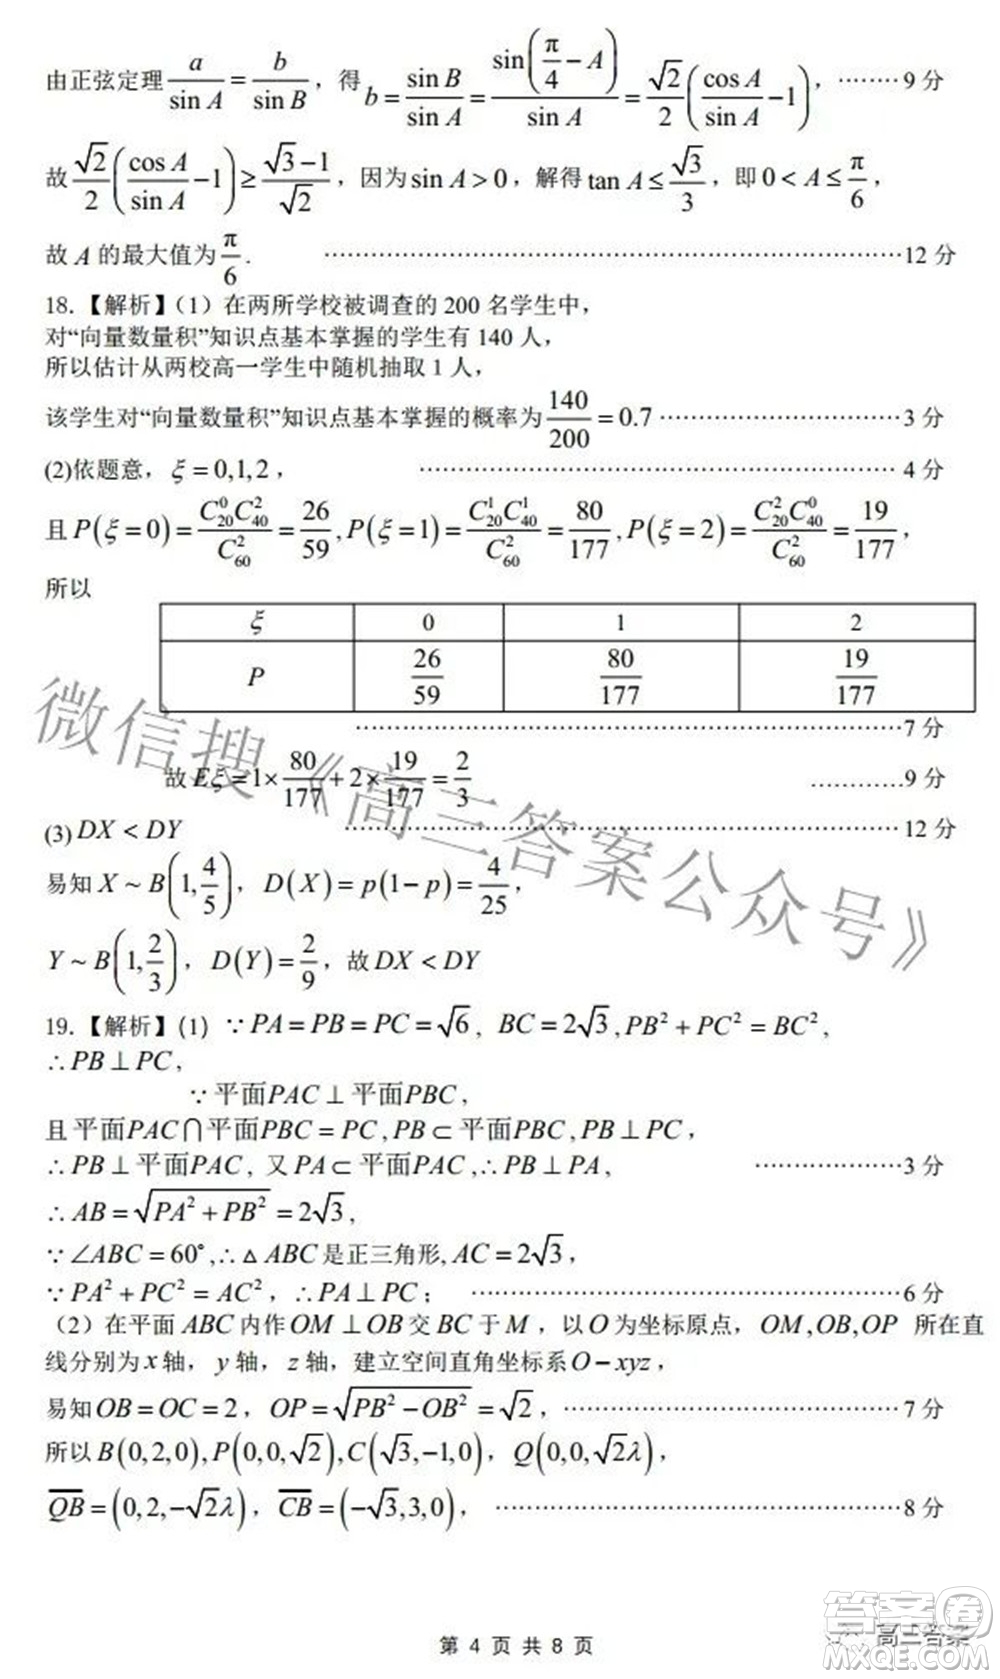 由正弦定理 a/sin A = b/sin B，得 b = sin B/sin A = sin(π/4 − A)/sin A = √2/2 (cos A/sin A − 1)，………9 分
故 √2/2 (cos A/sin A − 1) ≥ (√3−1)/√2，因为 sin A > 0，解得 tan A ≤ √3/3，即 0 < A ≤ π/6，
故 A 的最大值为 π/6 . ………12 分
18.【解析】（1）在两所学校被调查的 200 名学生中，
对“向量数量积”知识点基本掌握的学生有 140 人，
所以估计从两校高一学生中随机抽取 1 人，
该学生对“向量数量积”知识点基本掌握的概率为 140/200 = 0.7 ………3 分
(2)依题意，ξ = 0,1,2， ………4 分
且 P(ξ = 0) = C₂₀⁰C₄₀²/C₆₀² = 26/59, P(ξ = 1) = C₂₀¹C₄₀¹/C₆₀² = 80/177, P(ξ = 2) = C₂₀²C₄₀⁰/C₆₀² = 19/177，
所以
ξ 0 1 2
P 26/59 80/177 19/177
………7 分
故 Eξ = 1× 80/177 + 2× 19/177 = 2/3 ………9 分
(3) DX < DY ………12 分
易知 X ~ B(1, 4/5)，D(X) = p(1−p) = 4/25，
Y ~ B(1, 2/3)，D(Y) = 2/9，故 DX < DY
19.【解析】(1) ∵ PA = PB = PC = √6，BC = 2√3, PB² + PC² = BC²，
∴ PB ⊥ PC，
∵ 平面PAC ⊥ 平面PBC，
且 平面PAC ∩ 平面PBC = PC, PB ⊂ 平面PBC, PB ⊥ PC，
∴ PB ⊥ 平面PAC，又 PA ⊂ 平面PAC, ∴ PB ⊥ PA， ………3 分
∴ AB = √(PA² + PB²) = 2√3，
∵ ∠ABC = 60°, ∴ △ABC 是正三角形, AC = 2√3，
∵ PA² + PC² = AC²，∴ PA ⊥ PC； ………6 分
（2）在平面 ABC 内作 OM ⊥ OB 交 BC 于 M，以 O 为坐标原点，OM, OB, OP 所在直
线分别为 x 轴，y 轴，z 轴，建立空间直角坐标系 O − xyz，
易知 OB = OC = 2，OP = √(PB² − OB²) = √2，………7 分
所以 B(0,2,0), P(0,0,√2), C(√3,−1,0)，Q(0,0,√2λ)，
QB = (0,2,−√2λ)，CB = (−√3,3,0)， ………8 分
第 4 页 共 8 页
微信搜《高三答案公众号》
答案卷
高三答案
MXQE.COM